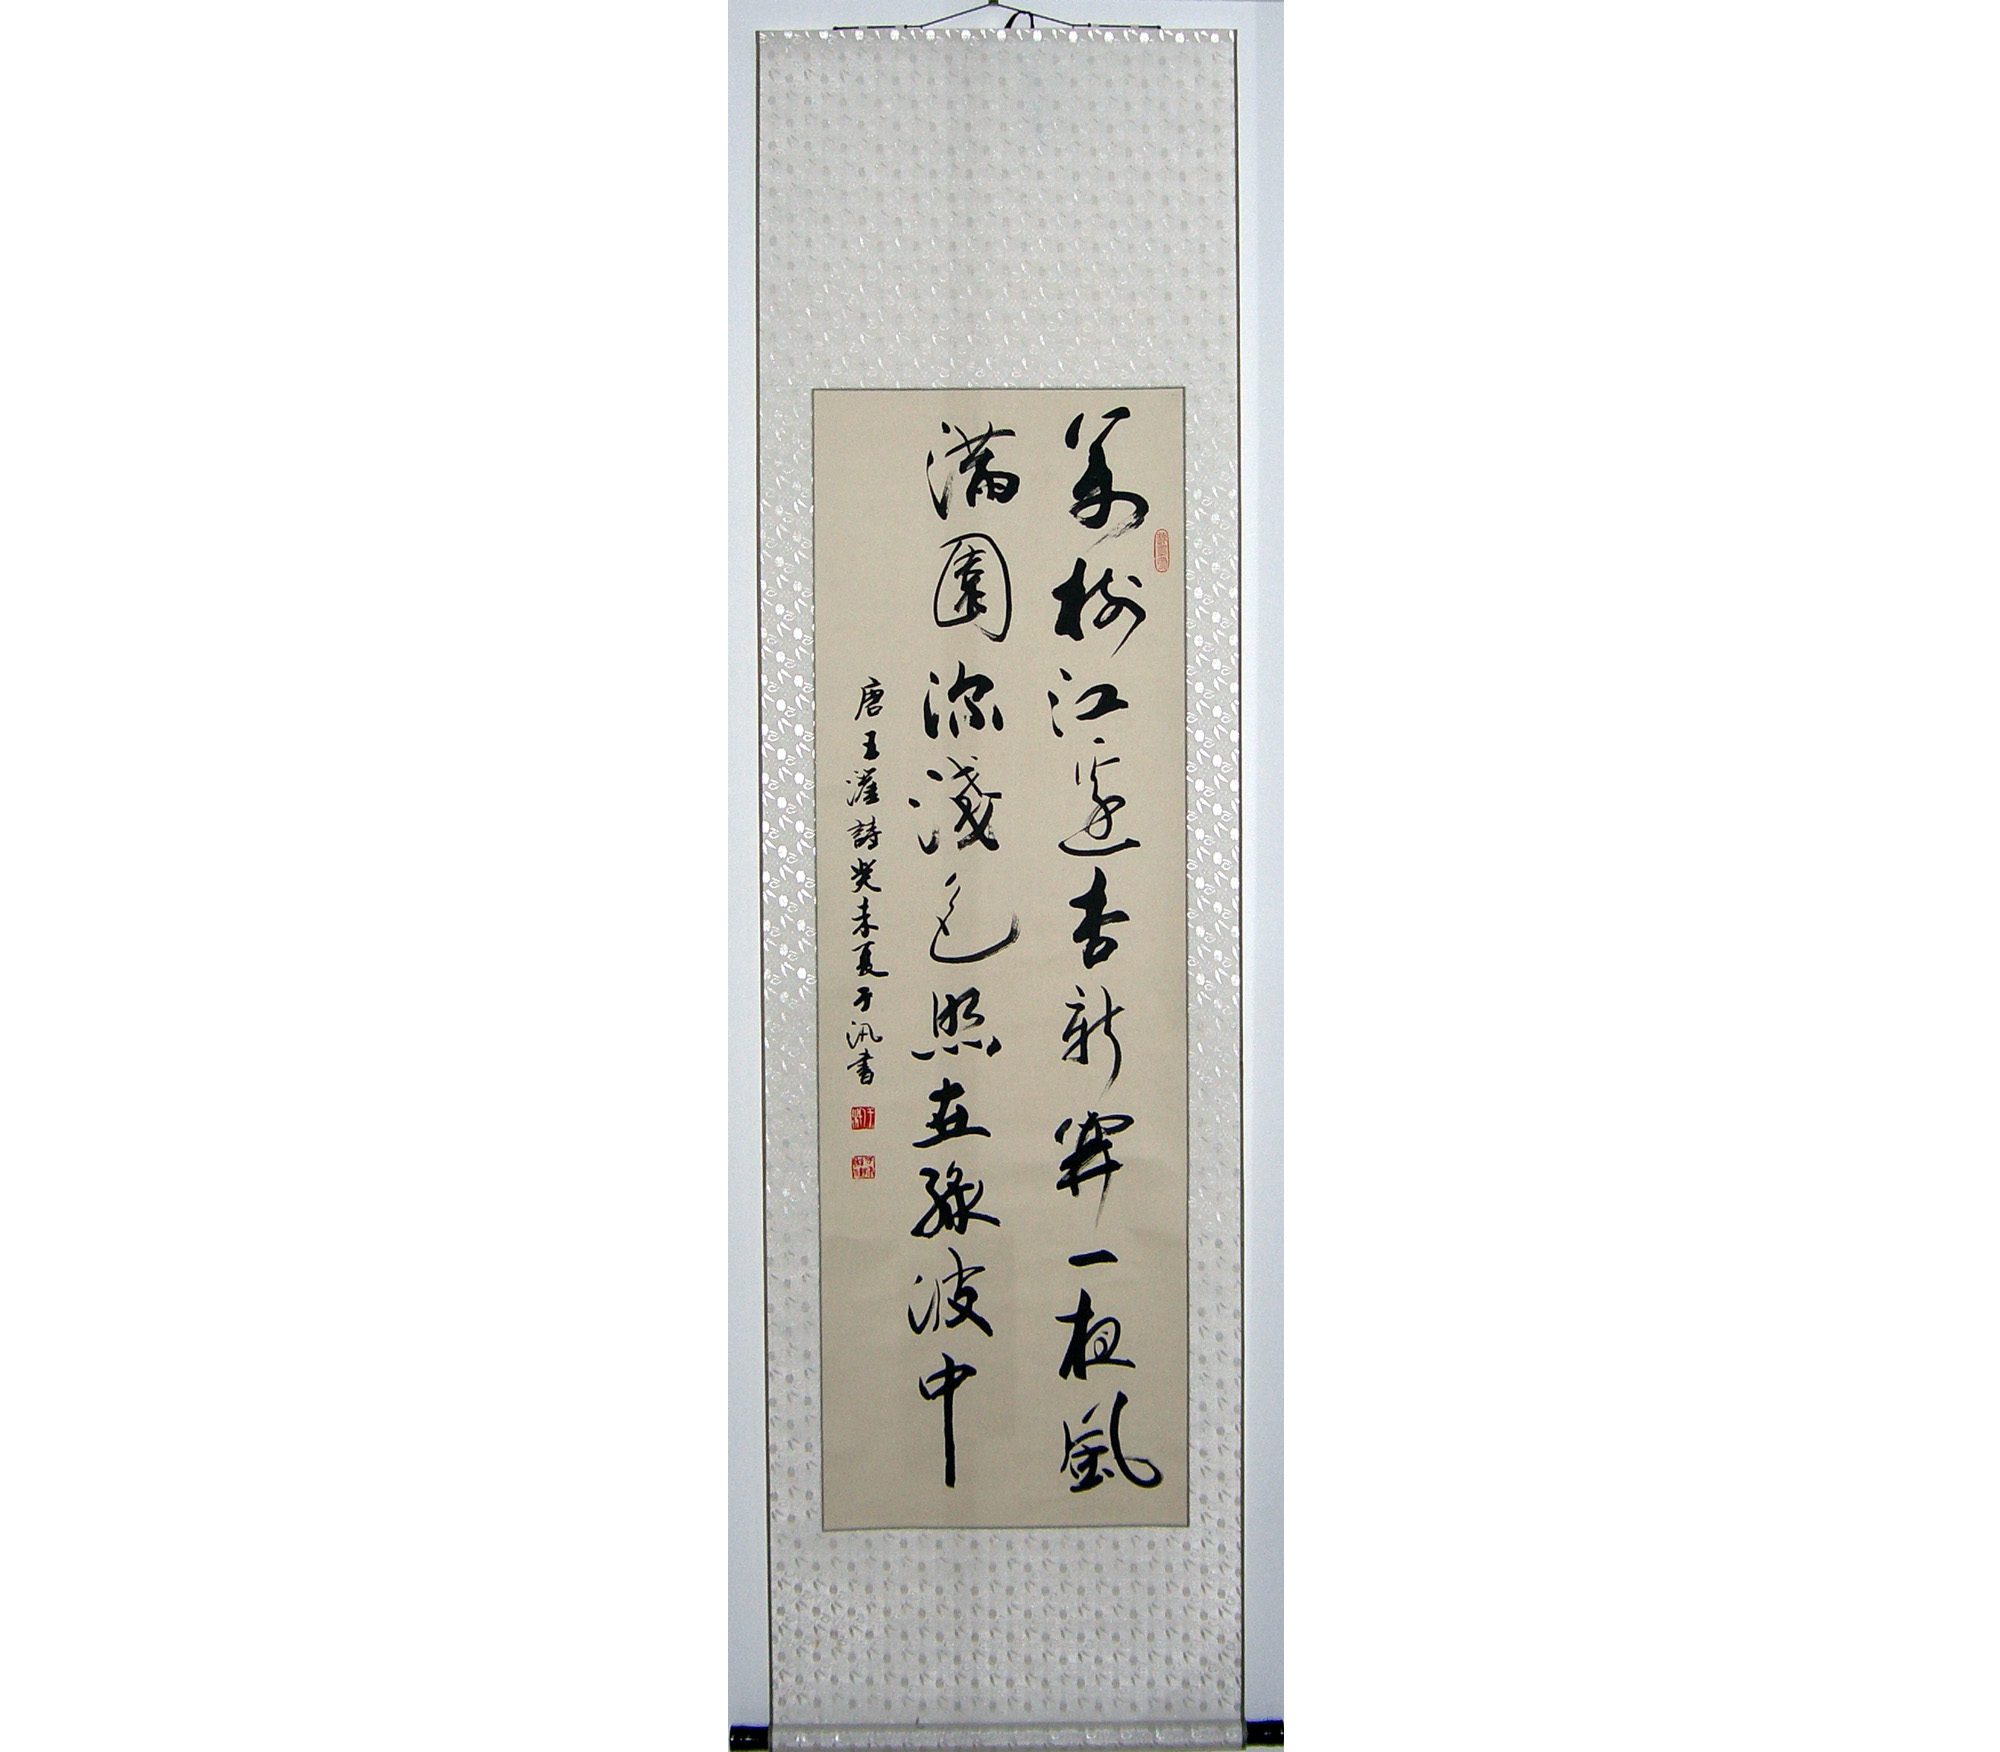 萬樹江邊杏新開一夜風
滿園深淺色照在綠波中
唐王涯詩癸未夏于汛書